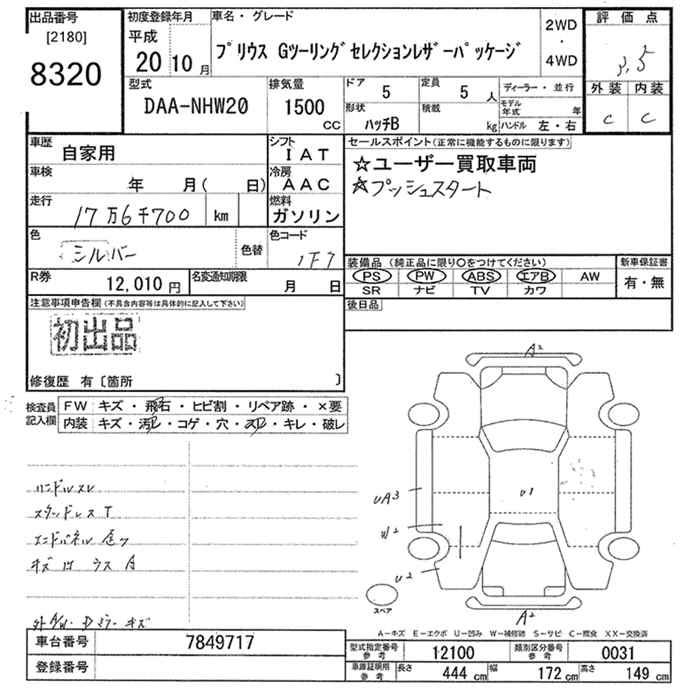 出品番号 初度登録年月 車名・グレード 評価点
[2180] 平成 2WD
8320 20 10月 プリウス Gツーリングセレクションレザーパッケージ ・ 3.5
4WD
型式 排気量 ドア 5 定員 5人 ディーラー・並行 外装 内装
DAA-NHW20 1500cc 形状 ハッチB 積載 kg モデル年式 年 C C
ハンドル 左・右
車歴 自家用 シフト IAT セールスポイント(正常に機能するものに限ります)
車検 年 月( 日) 冷房 AAC ☆ユーザー買取車両
走行 17万6千700 km 燃料 ガソリン ☆プッシュスタート
色 シルバー 色替 色コード 1F7 装備品(純正品に限り○をつけてください) 新車保証書
R券 12,010円 名変通知期限 月 日 PS PW ABS エアB AW 有・無
SR ナビ TV カワ
注意事項申告欄(不具合内容等は具体的に記入して下さい) 後日品
初出品
修復歴 有〔箇所 〕
検査員記入欄 FW キズ・飛石・ヒビ割・リペア跡・×要
内装 キズ・汚れ・コゲ・穴・スレ・キレ・破レ
A2
U1
UA3
W2
U2
A2
スペア
ハンドルスレ
スタッドレスT
キズ有 ウスA
A-キズ E-エクボ U-凹み W-補修跡 S-サビ C-腐食 XX-交換済
車台番号 7849717 型式指定番号 参考 12100 類別区分番号 参考 0031
登録番号 車庫証明用 参考 長さ 444cm 幅 172cm 高さ 149cm